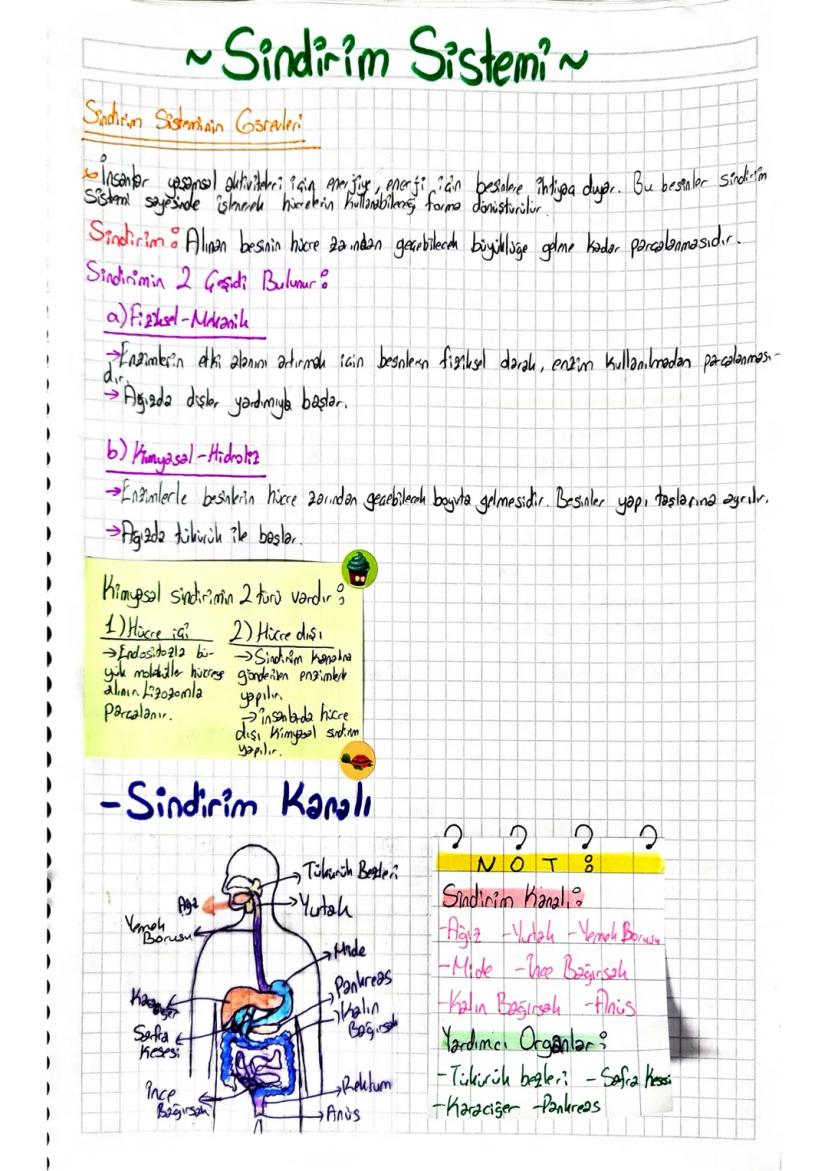 ~ Sindirim Sistemi ~
Sindirim Sisteminin Görevleri
İnsanlar yaşamsal aktiviteleri için enerjiye, enerji için besinlere ihtiyaç duyar. Bu besinler sindirim
sistemi sayesinde işlenerek hücrelerin kullanabileceği forma dönüştürülür.
Sindirim: Alınan besinin hücre zarından geçebilecek büyüklüğe gelme kadar parçalanmasıdır.
Sindirimin 2 Çeşidi Bulunur:
a) Fiziksel-Mekanik
→ Enzimlerin etki alanını artırmak için besinlerin fiziksel olarak, enzim kullanılmadan parçalanması-
dır.
→ Ağızda dişler yardımıyla başlar.
b) Kimyasal-Hidroliz
→ Enzimlerle besinlerin hücre zarından geçebilecek boyuta gelmesidir. Besinler yapı taşlarına ayrılır.
→ Ağızda tükürük ile başlar.
Kimyasal sindirimin 2 türü vardır:
1) Hücre içi
→ Endositozla bü-
yük moleküller hücreye
alınır. Lizozomla
parçalanır.
2) Hücre dışı
→ Sindirim kanalına
gönderilen enzimlerle
yapılır.
→ İnsanlarda hücre
dışı kimyasal sindirim
yapılır.
-Sindirim Kanalı
Tükürük Bezleri
Ağız
Yutak
Yemek
Borusu
Mide
Pankreas
Karaciğer
Kalın
Bağırsak
Safra
Kesesi
İnce
Bağırsak
Rektum
Anüs
NOT:
Sindirim Kanalı:
-Ağız -Yutak -Yemek Borusu
-Mide -İnce Bağırsak
-Kalın Bağırsak -Anüs
Yardımcı Organlar:
-Tükürük bezleri -Safra Kesesi
-Karaciğer -Pankreas